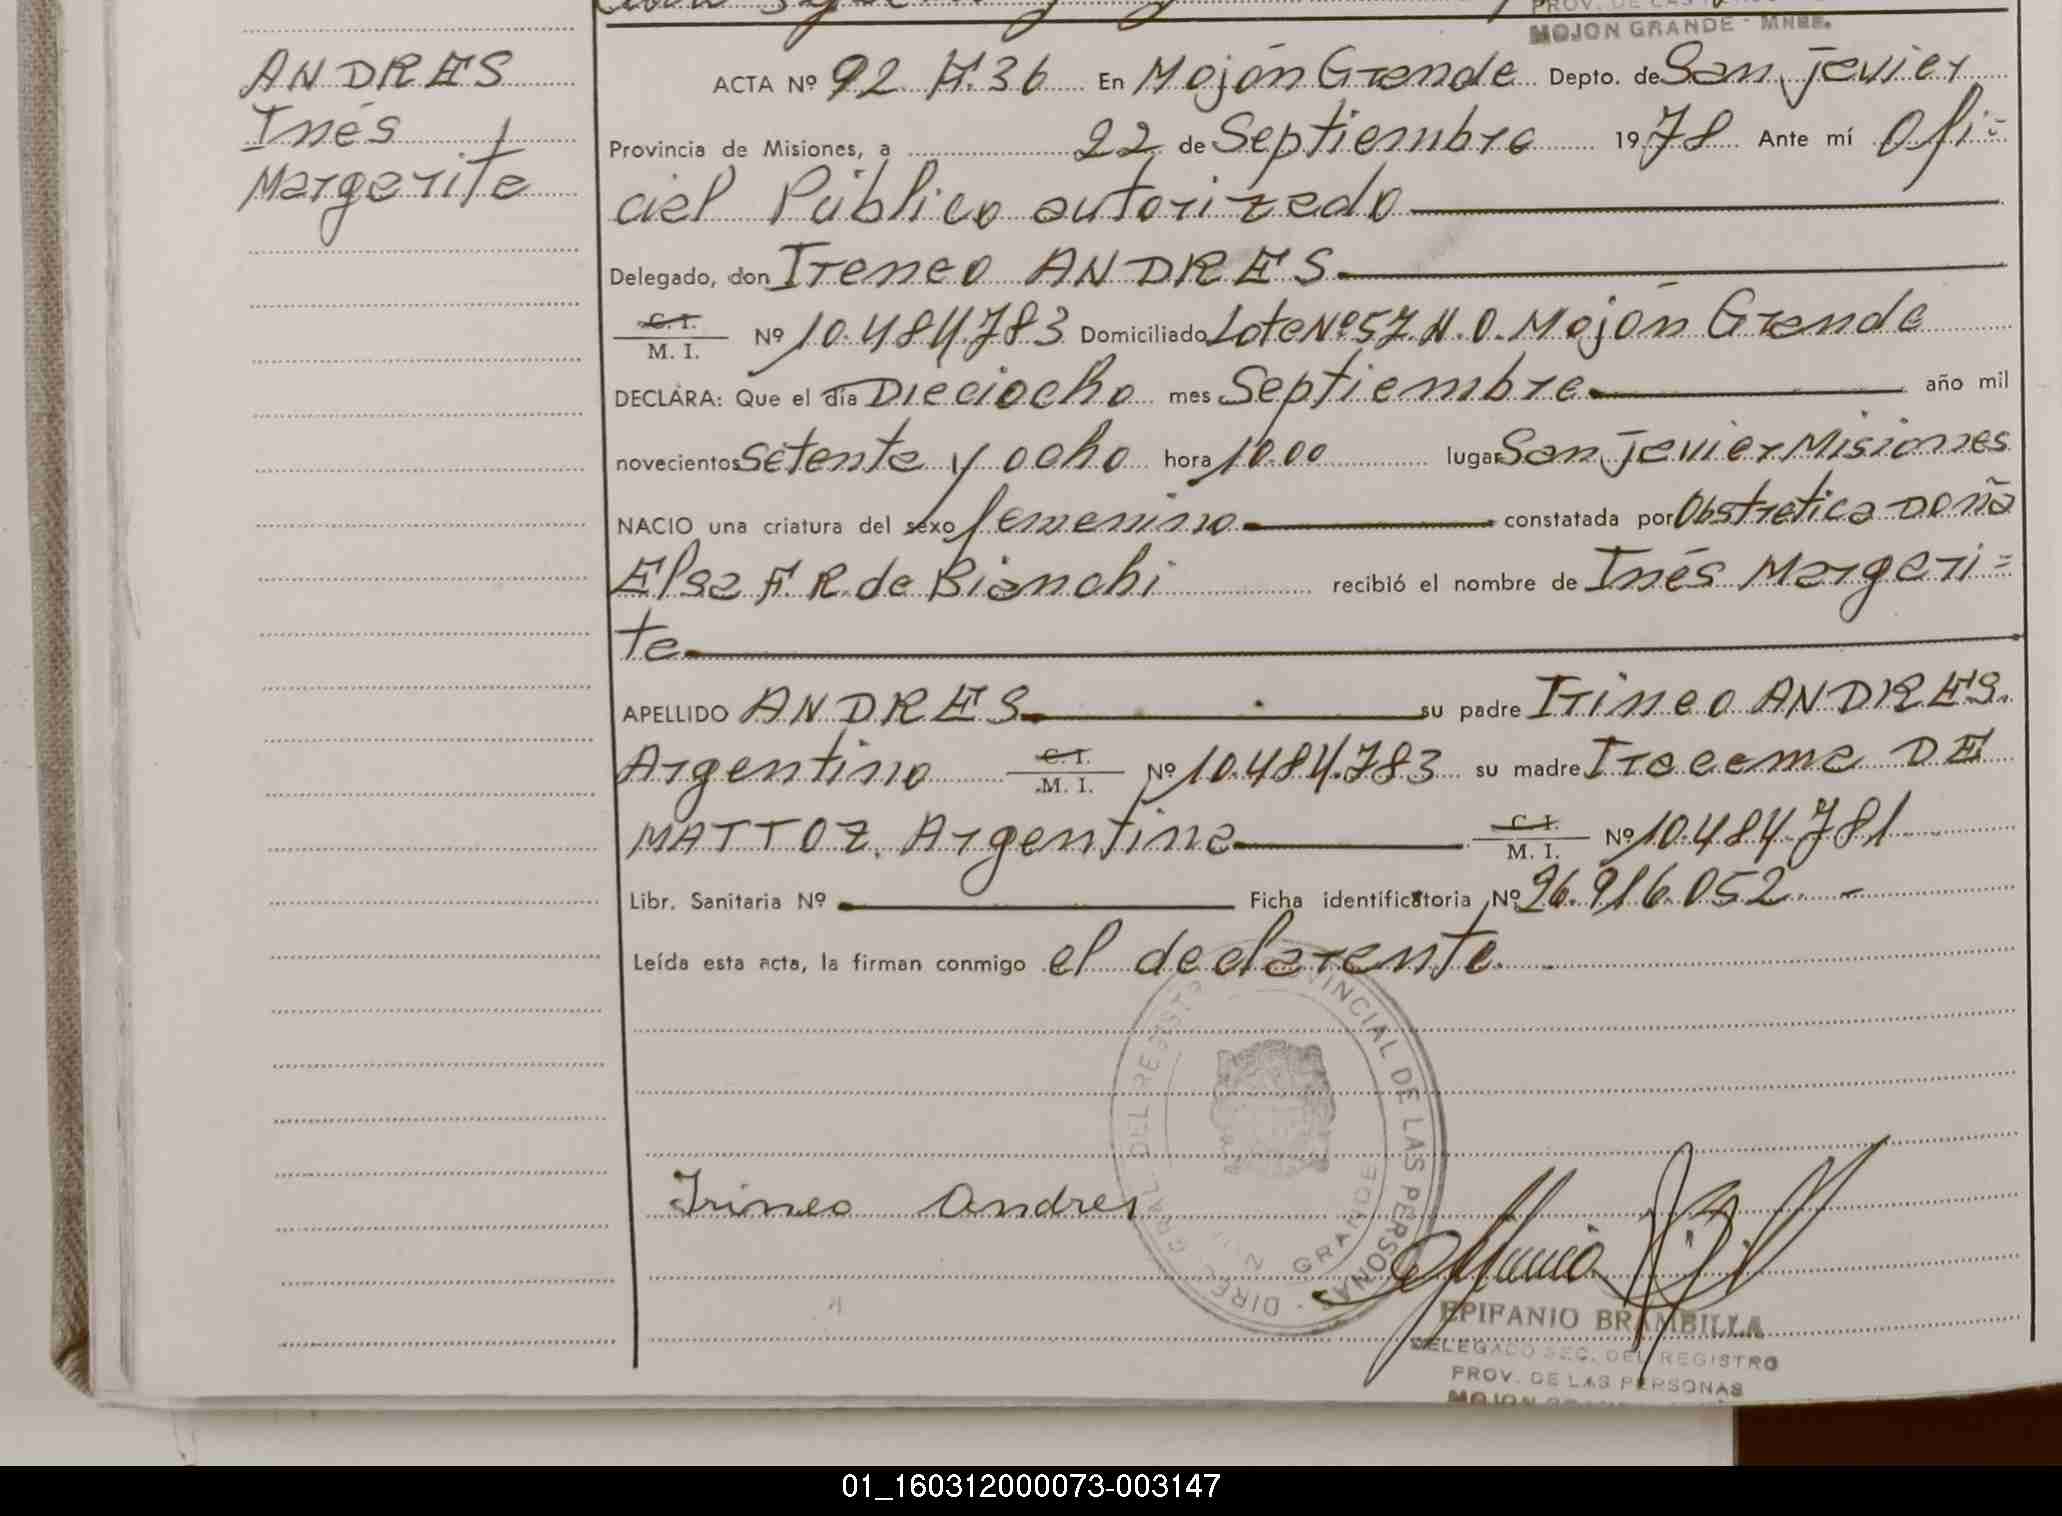 PROV. DE LAS
MOJON GRANDE - MNES.
ANDRES
Inés
Margarita
ACTA Nº 92. F. 36 En Mojón Grande Depto. de San Javier
Provincia de Misiones, a 22 de Septiembre 1978 Ante mí Ofi=
cial Público autorizado
Delegado, don Ireneo ANDRES
C. I.
M. I. Nº 10.484.783 Domiciliado Lote Nº 57. N. O. Mojón Grande
DECLARA: Que el día Dieciocho mes Septiembre año mil
novecientos Setenta y ocho hora 10.00 lugar San Javier Misiones
NACIO una criatura del sexo femenino constatada por Obstretica Doña
Elsa F. R. de Bianchi recibió el nombre de Inés Margari=
ta
APELLIDO ANDRES su padre Irineo ANDRES.
Argentino C. I. M. I. Nº 10.484.783 su madre Iracema DE
MATTOZ. Argentina C. I. M. I. Nº 10.484.781
Libr. Sanitaria Nº Ficha identificatoria Nº 26.916.052. -
Leída esta acta, la firman conmigo el declarante.
DIREC. GRAL. DEL REGISTRO PROVINCIAL DE LAS PERSONAS
GRANDE
Irineo Andres
EPIFANIO BRAMBILLA
DELEGADO SEC. DEL REGISTRO
PROV. DE LAS PERSONAS
MOJON
01_160312000073-003147